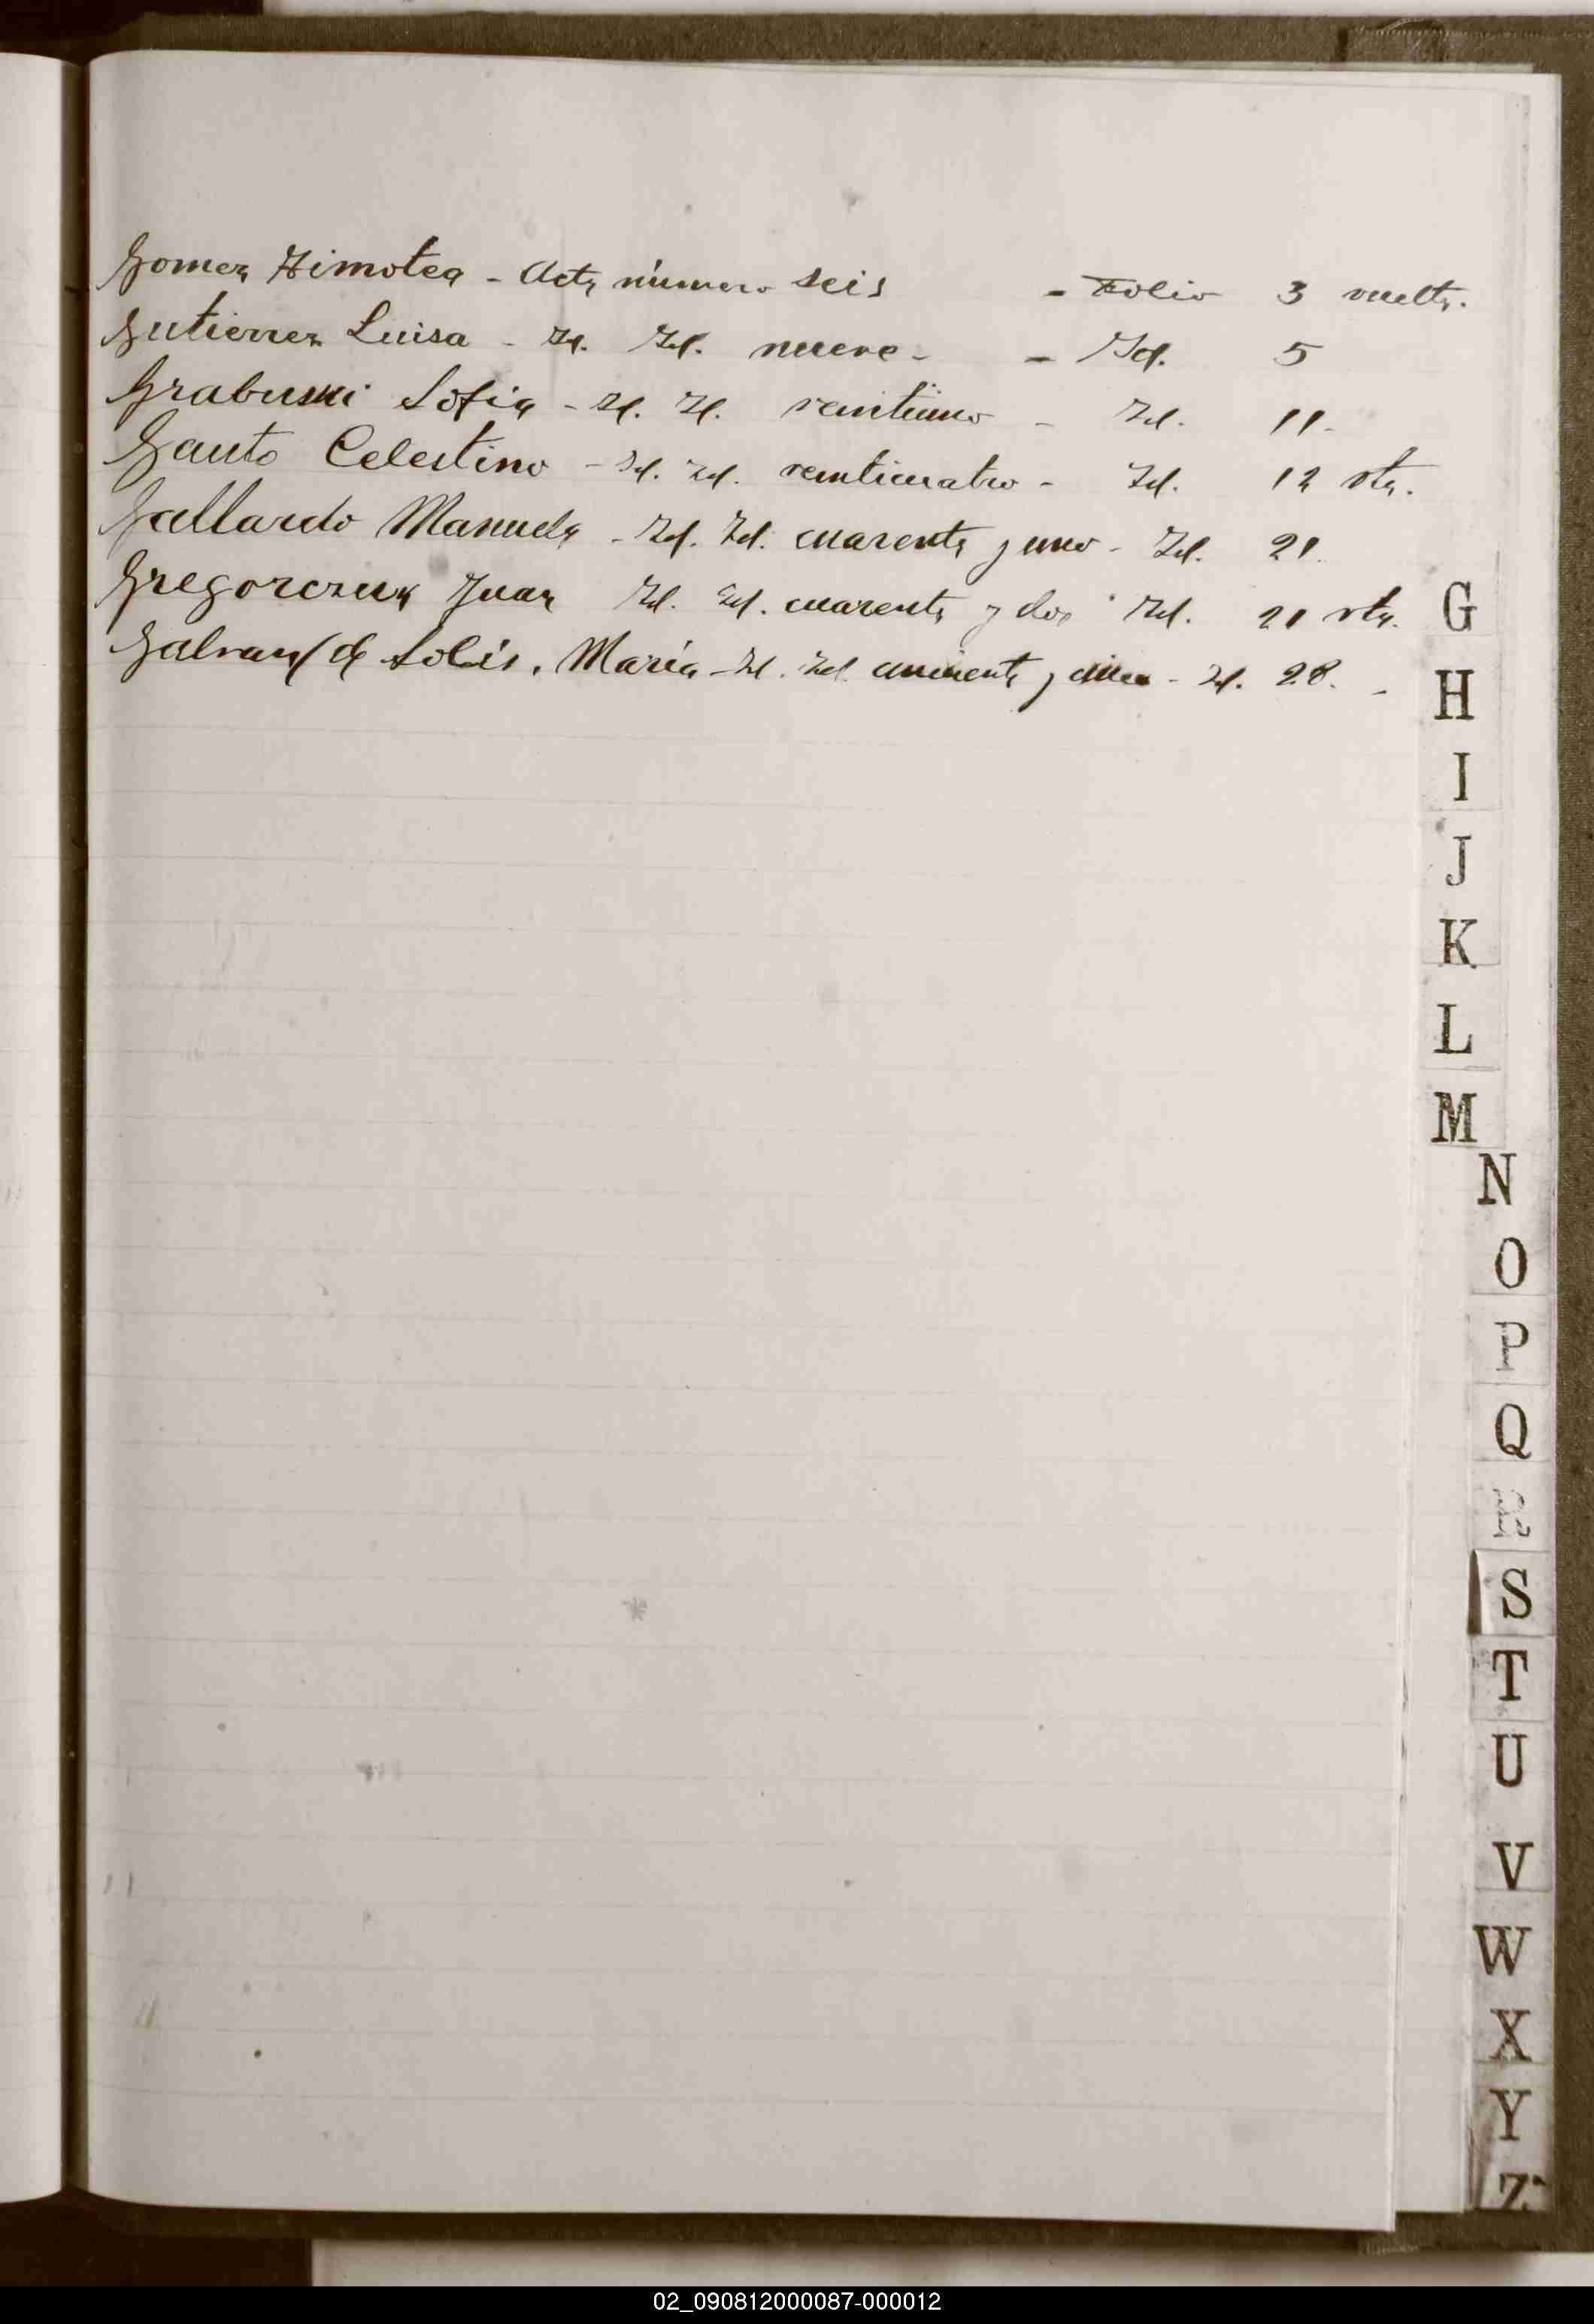 Gomez Timotea - Acta número seis - Folio 3 vuelta.
Gutierrez Luisa - Id. Id. nueve - - Id. 5
Grabuski Sofia - Id. Id. veintiuno - Id. 11.
Gauto Celestino - Id. Id. veinticuatro - Id. 12 vta.
Gallardo Manuela - Id. Id. cuarenta y uno - Id. 21.
Gregorczuk Juan Id. Id. cuarenta y dos Id. 21 vta.
Galvan de Solis, María - Id. Id. cincuenta y cinco - Id. 28. -
G
H
I
J
K
L
M
N
O
P
Q
S
T
U
V
W
X
Y
Z
02_090812000087-000012